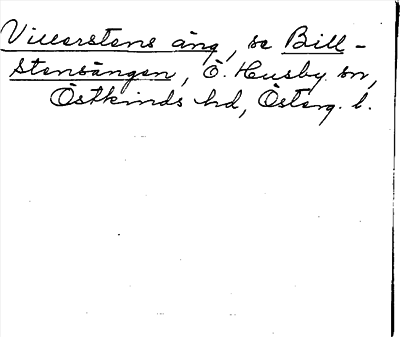 Villerstens äng, se Bill-
stensängen, Ö. Husby sn,
Östkinds hd, Österg. l.